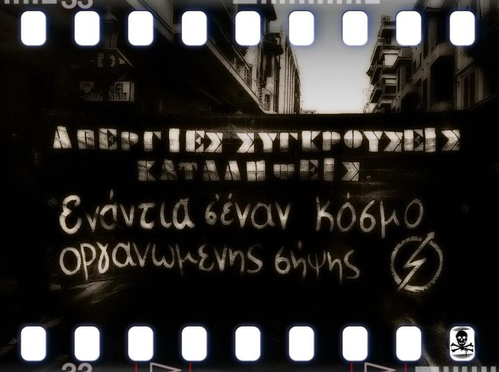 33
ΑΠΕΡΓΙΕΣ ΣΥΓΚΡΟΥΣΕΙΣ
ΚΑΤΑΛΗΨΕΙΣ
Ενάντια σ'έναν κόσμο
οργανωμένης σήψης
33